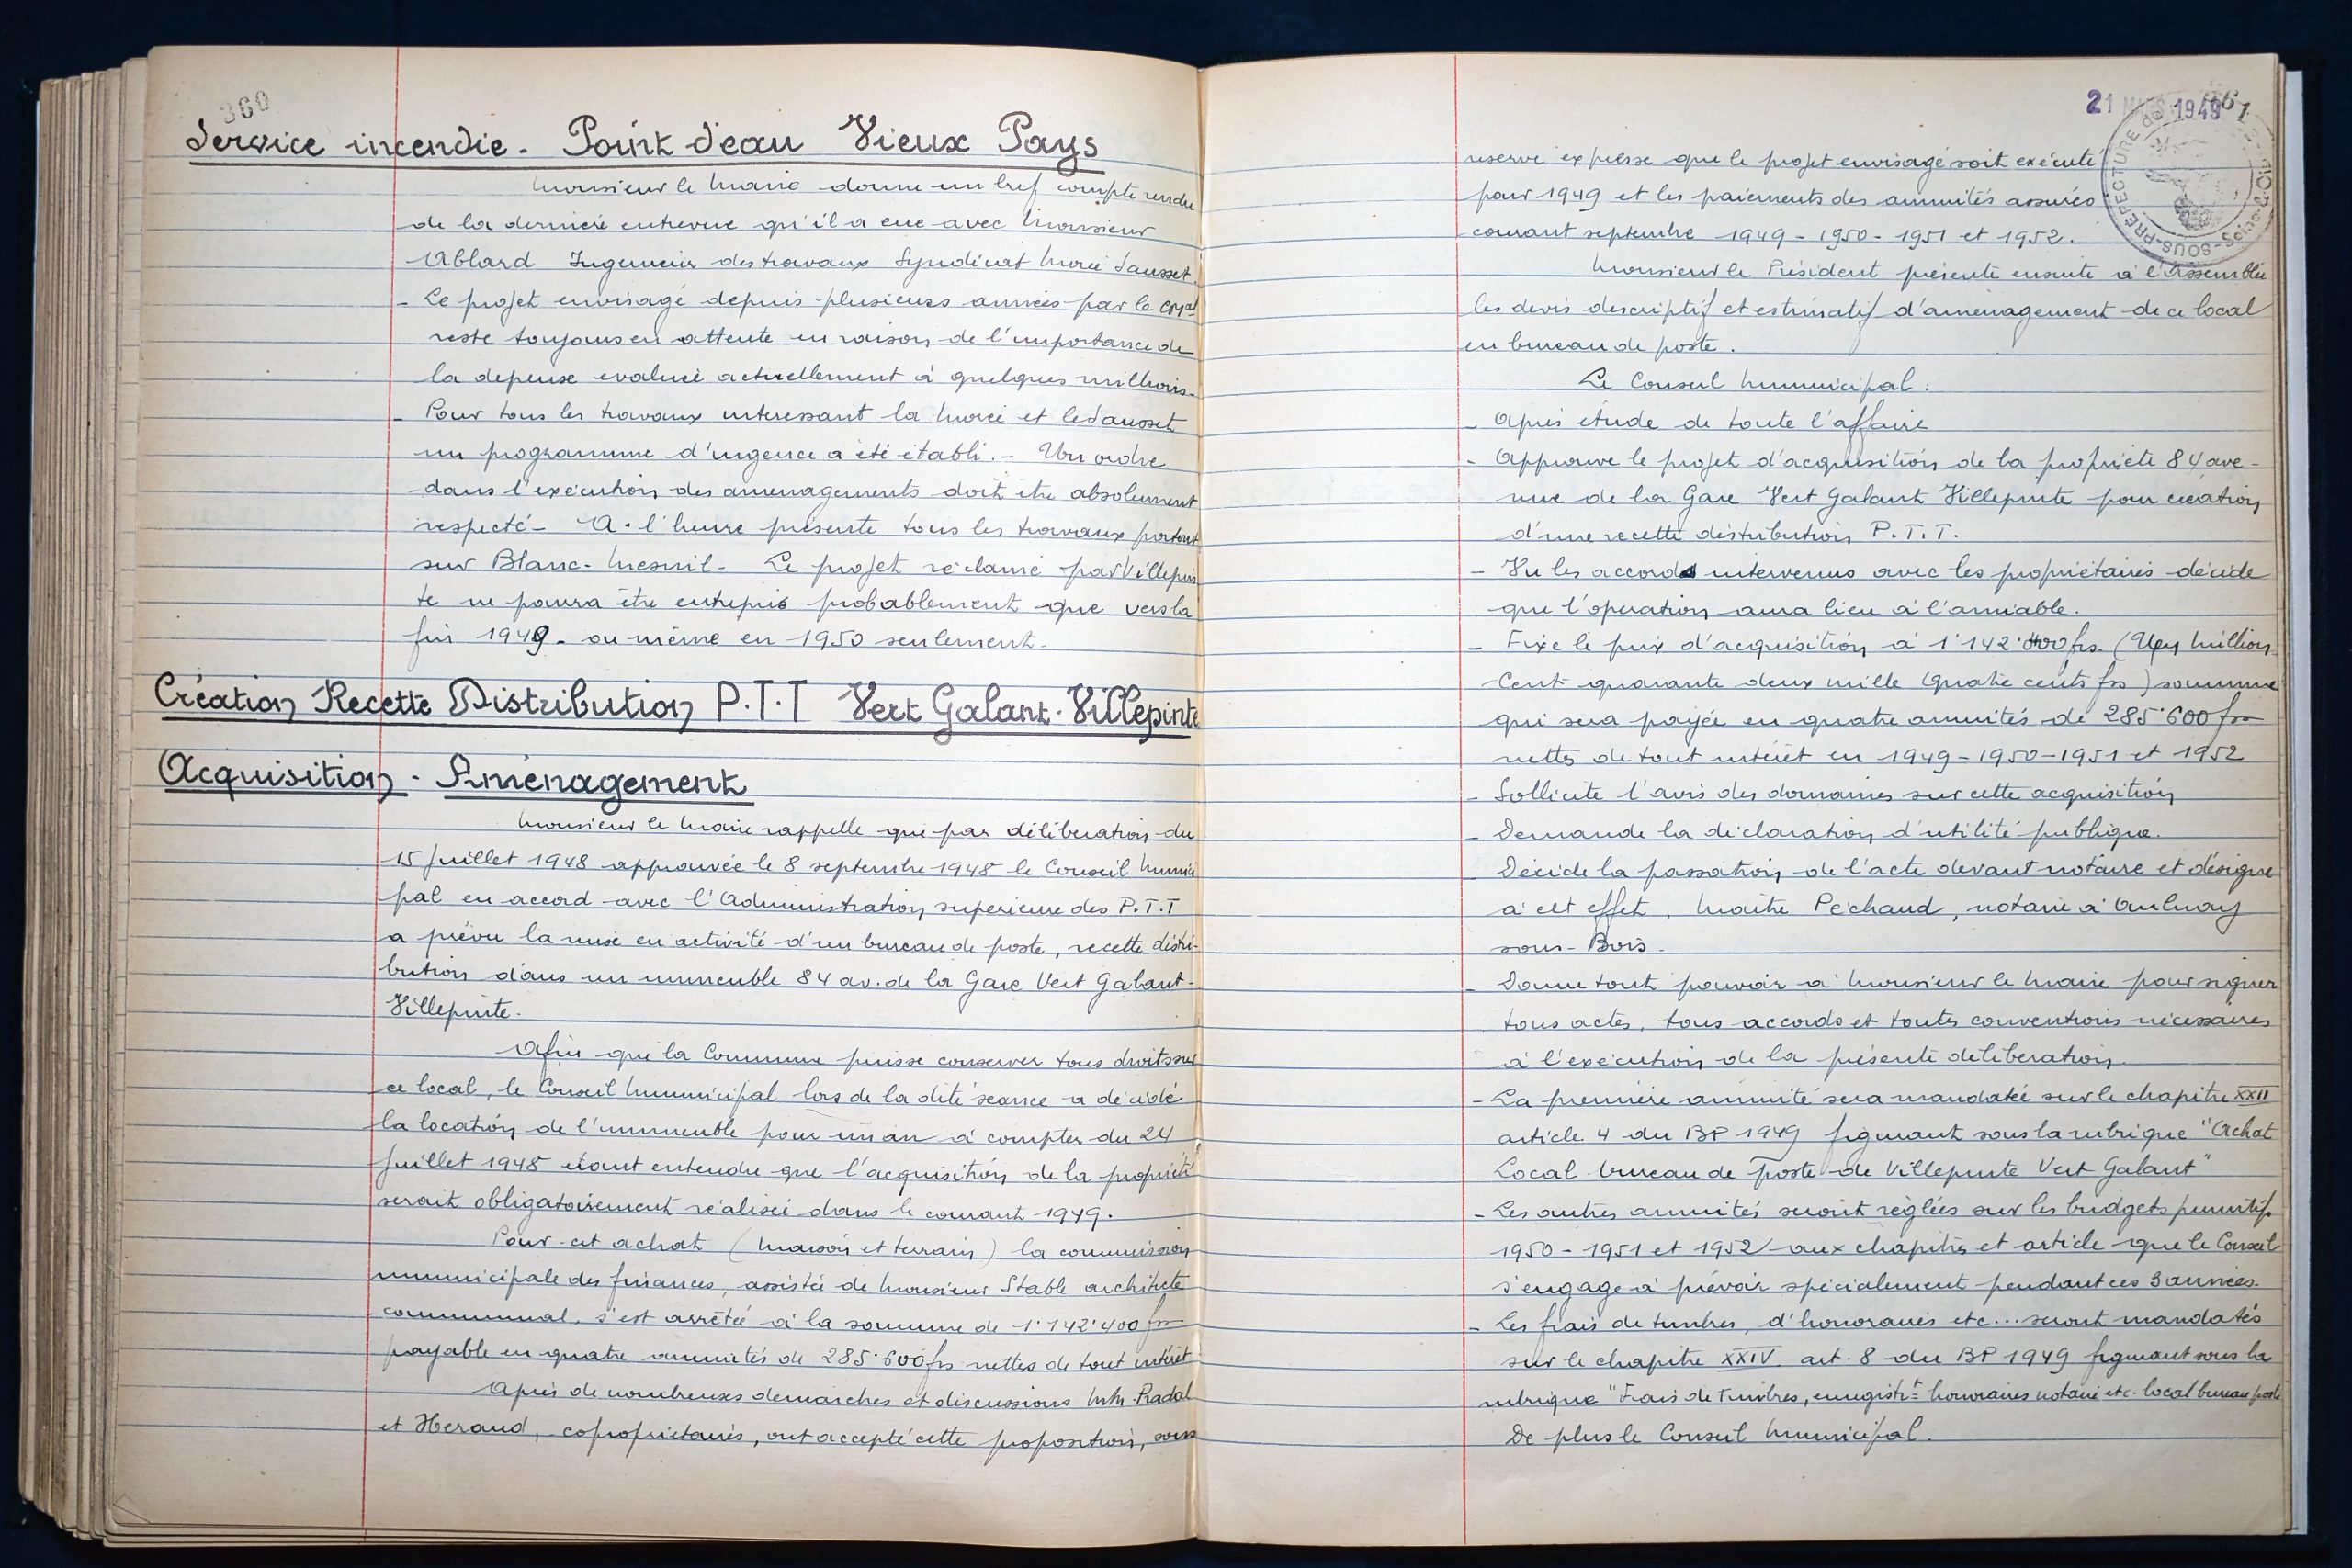 360
Service incendie - Point d'eau Vieux Pays
Monsieur le Maire donne un bref compte rendu
de la dernière entrevue qu'il a eue avec Monsieur
Ablard Ingenieur des travaux Syndicat Morée Sausset.
- Le projet envisagé depuis plusieurs années par le
reste toujours en attente en raison de l'importance de
la depense evaluée actuellement à quelques millions.
- Pour tous les travaux interessant la Morée et le Sausset
un programme d'urgence a été établi. - Un ordre
dans l'exécution des amenagements doit être absolument
respecté - A l'heure présente tous les travaux portent
sur Blanc-Mesnil - Le projet réclamé par Villepin
te ne pourra être entrepris probablement que vers la
fin 1949 - ou même en 1950 seulement.
Création Recette Distribution P.T.T Vert Galant-Villepinte
Acquisition - Aménagement
Monsieur le Maire rappelle que par délibération du
15 Juillet 1948 approuvée le 8 septembre 1948 le Conseil Munici
pal en accord avec l'Administration superieure des P.T.T
a prévu la mise en activité d'un bureau de poste, recette distri-
bution dans un immeuble 84 av. de la Gare Vert Galant-
Villepinte.
Afin que la Commune puisse conserver tous droits sur
ce local, le Conseil Municipal lors de la dite séance a décidé
la location de l'immeuble pour un an à compter du 24
Juillet 1948 étant entendu que l'acquisition de la propriété
serait obligatoirement réalisée dans le courant 1949.
Pour cet achat (Maison et terrain) la commission
municipale des finances, assistée de Monsieur Stable architecte
communal, s'est arrêtée à la somme de 1.142.400 frs
payable en quatre annuités de 285.600 frs nettes de tout intérêt
Après de nombreuses demarches et discussions MM. Pradal
et Heraud, copropriétaires, ont accepté cette proposition, sous
21 MARS 1949
361
SOUS-PRÉFECTURE de
reserve expresse que le projet envisagé soit exécuté
pour 1949 et les paiements des annuités assurés
courant septembre 1949 - 1950 - 1951 et 1952.
Monsieur le Président présente ensuite à l'Assemblée
les devis descriptif et estimatif d'aménagement de ce local
en bureau de poste.
Le Conseil Municipal :
- Après étude de toute l'affaire
- Approuve le projet d'acquisition de la propriété 84 ave-
nue de la Gare Vert Galant Villepinte pour création
d'une recette distribution P.T.T.
- Vu les accords intervenus avec les propriétaires décide
que l'opération aura lieu à l'amiable.
- Fixe le prix d'acquisition à 1.142.400 frs (Un Million
Cent quarante deux mille quatre cents frs) somme
qui sera payée en quatre annuités de 285.600 frs
nettes de tout intérêt en 1949 - 1950 - 1951 et 1952
- Sollicite l'avis des domaines sur cette acquisition
- Demande la déclaration d'utilité publique.
- Décide la passation de l'acte devant notaire et désigne
à cet effet, Maître Péchaud, notaire à Aulnay
sous-Bois.
- Donne tout pouvoir à Monsieur le Maire pour signer
tous actes, tous accords et toutes conventions nécessaires
à l'exécution de la présente délibération.
- La première annuité sera mandatée sur le chapitre XXII
article 4 du BP 1949 figurant sous la rubrique "Achat
Local bureau de poste de Villepinte Vert Galant"
- Les autres annuités seront réglées sur les budgets primitifs
1950 - 1951 et 1952 aux chapitres et article que le Conseil
s'engage à prévoir spécialement pendant ces 3 années.
- Les frais de timbres, d'honoraires etc... seront mandatés
sur le chapitre XXIV art. 8 du BP 1949 figurant sous la
rubrique "Frais de Timbres, enregistrt honoraires notaire etc. local bureau poste
De plus le Conseil Municipal.